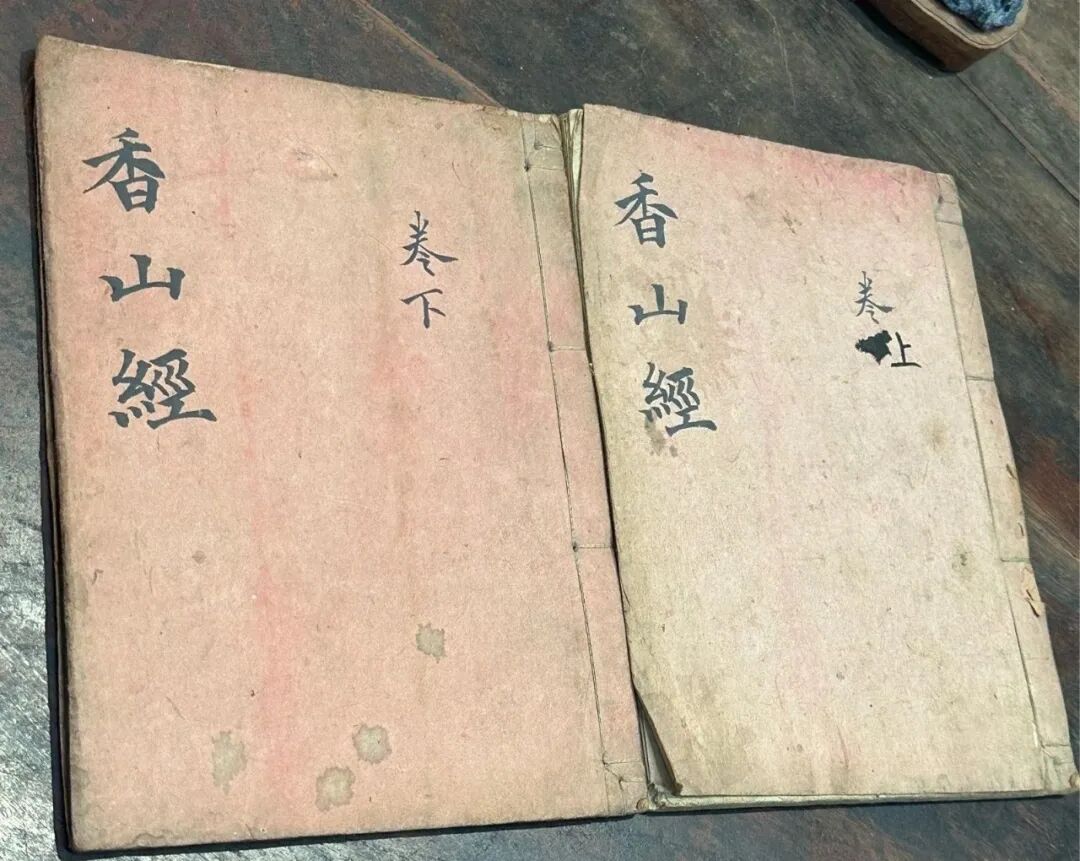 香山經
卷上
香山經
卷下